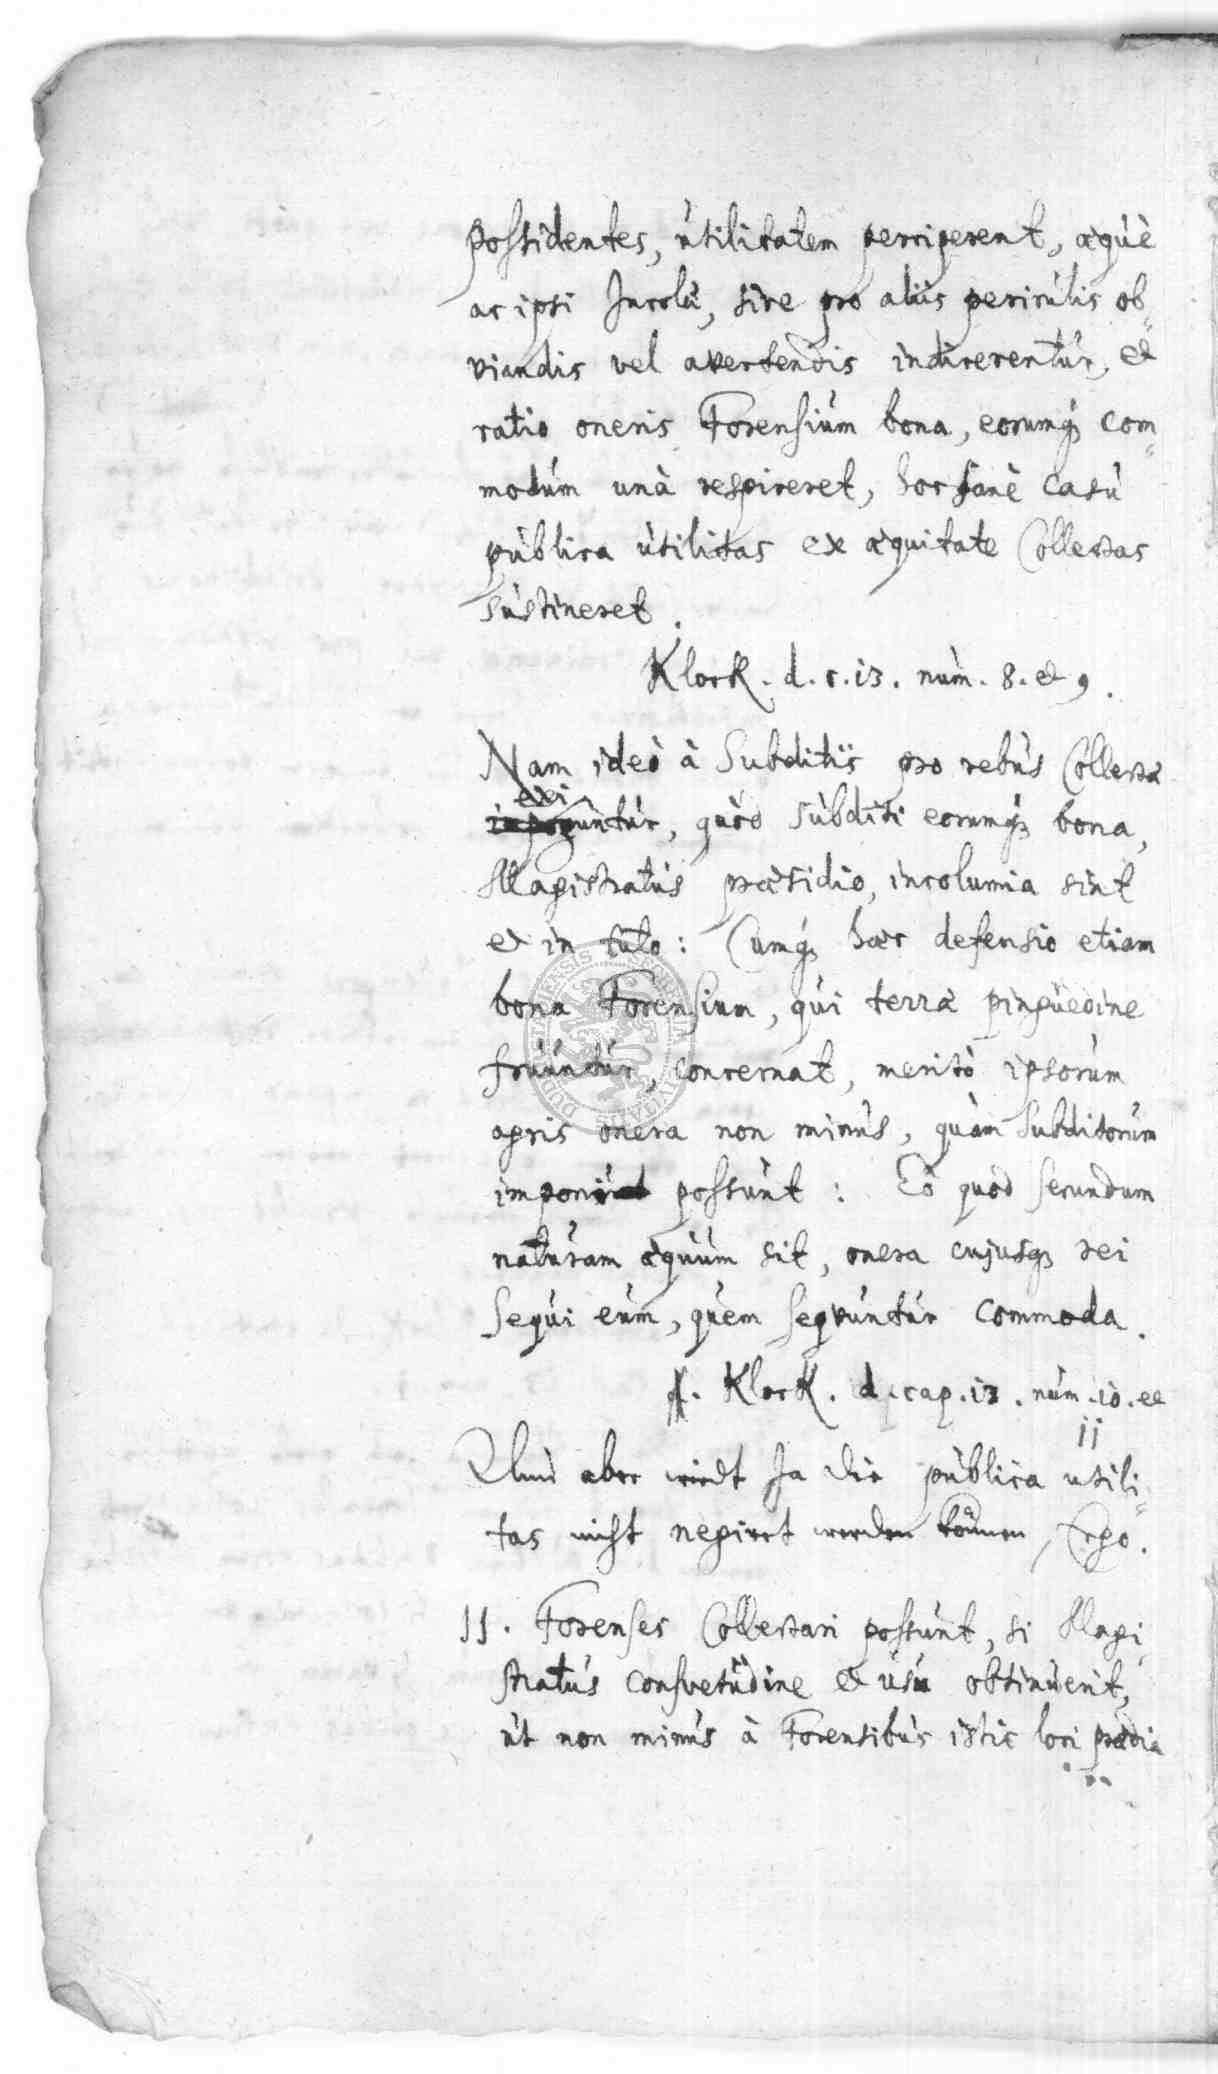 possidentes, utilitatem perciperent, æquè
ac ipsi Incolæ, sive pro aliis periculis ob-
viandis vel avertendis indicerentur, et
ratio oneris Forensium bona, eorumq; com-
modum unà respiceret, hoc sanè casu
publica utilitas ex æquitate Collectas
sustineret.
Klock. d. c. 13. num. 8. et 9.
Nam ideò à Subditis pro rebus Collectæ
exiguntur, quòd subditi eorumq; bona,
Magistratus præsidio, incolumia sint
et in tuto: Cumq; hæc defensio etiam
bona Forensium, qui terræ pinguedine
fruuntur, concernat, meritò ipsorum
agris onera non minus, quàm Subditorum
imponi possunt: Eò quòd secundum
naturam æquum sit, onera cujusq; rei
sequi eum, quem sequuntur commoda.
Klock. d. cap. 13. num. 10. et
11
Nun aber wirdt Ja die publica utili-
tas nicht negiret werden können, Ergo.
11. Forenses Collectari possunt, si Magi-
stratus consvetudine et usu obtinuerit,
ut non minus à Forensibus istic loci prædia
SIGILLUM CIVITATIS DUDERSTADENSIS